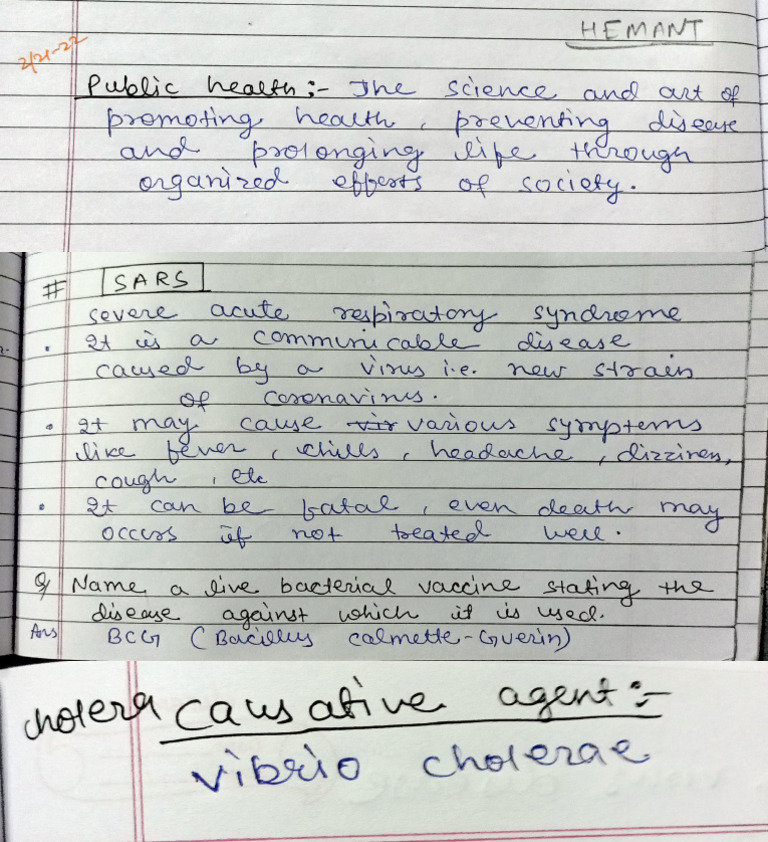 HEMANT
2/21-22
Public health:- The science and art of
promoting health, preventing disease
and prolonging life through
organized efforts of society.
# SARS
severe acute respiratory syndrome
• It is a communicable disease
caused by a virus i.e. new strain
of coronavirus.
• It may cause vir various symptems
like fever, chills, headache, dizziness,
cough, etc
• It can be fatal, even death may
occurs if not treated well.
Q/ Name a live bacterial vaccine stating the
disease against which it is used.
Ans BCG (Bacillus calmette-Guerin)
cholera causative agent:-
vibrio cholerae